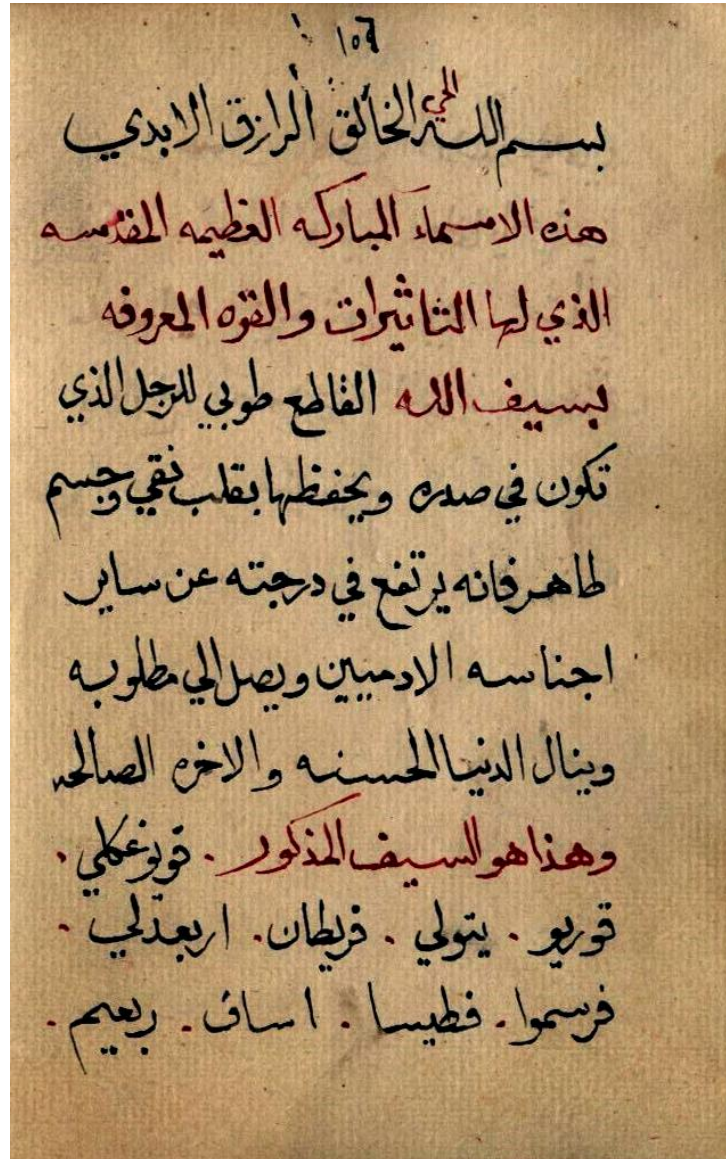 ١٥٦
بسم الله الحي الخالق الرازق الابدي
هذه الاسماء المباركه العظيمه المقدسه
الذي لها التاثيرات والقوه المعروفه
بسيف الله القاطع طوبي للرجل الذي
تكون في صدره ويحفظها بقلب نقي وجسم
طاهر فانه يرتفع في درجته عن ساير
اجناسه الادميين ويصل الي مطلوبه
وينال الدنيا الحسنه والاخره الصالحه
وهذا هو السيف المذكور .
قوريو . يتولي . فريطان . اربعدلي .
فرسموا . فطيسا . اساف . ربعيم .